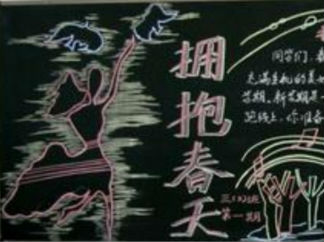 拥抱春天
三(3)班
第一期
同学们，春
充满生机的美
学期。新学期是
跑线上，你准备